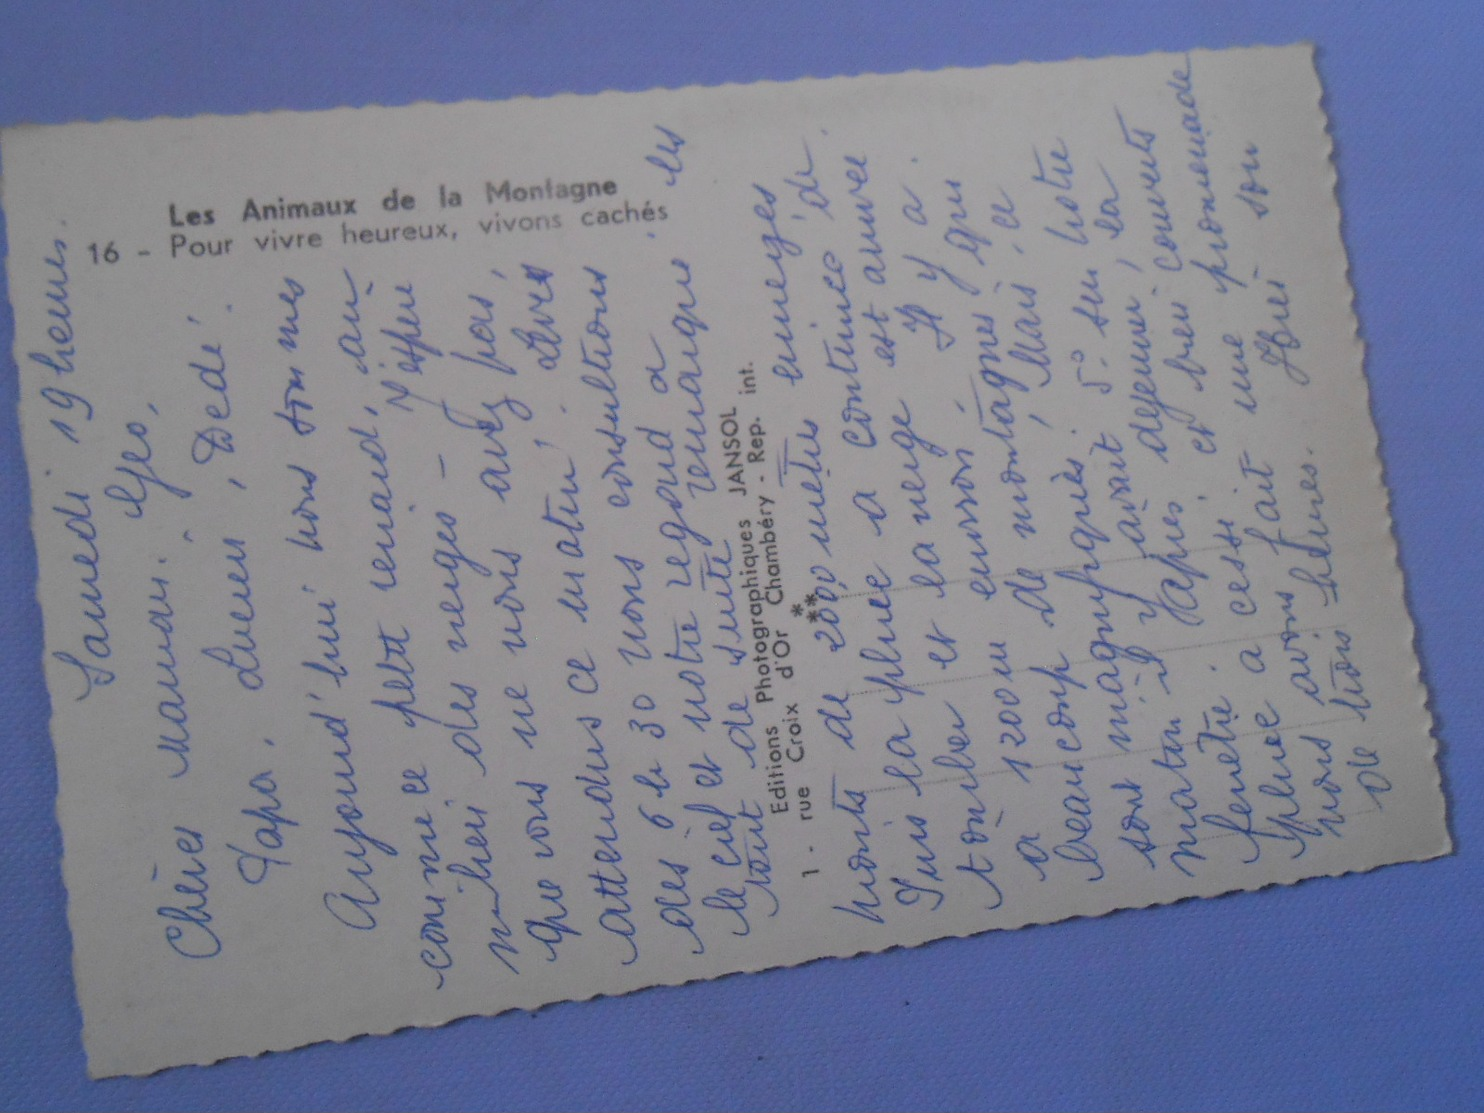 Les Animaux de la Montagne
16 - Pour vivre heureux, vivons cachés
Samedi 19 heures.
Chères Maman. Geo,
Papa. Lucien, Dedé.
Aujourd'hui nous sommes
comme ce petit renard, au
milieu des neiges - J'espère
que vous ne nous avez pas,
attendus ce matin.
dès 6 h 30 nous consultions
le ciel et notre regard a
tout de suite remarqué les
Editions Photographiques JANSOL
1 - rue Croix d'Or Chambéry - Rep. int.
monts de 2000 mètres enneigés
Puis la pluie a continué de
tomber et la neige est arrivée
a 1200 m environ. Il y a
beaucoup de montagnes qui
sont magnifiques. Mais ce
matin il y avait 5° sur notre
fenêtre. Après déjeuner, la
pluie a cessé et bien couverts
nous avons fait une promenade
de trois heures.